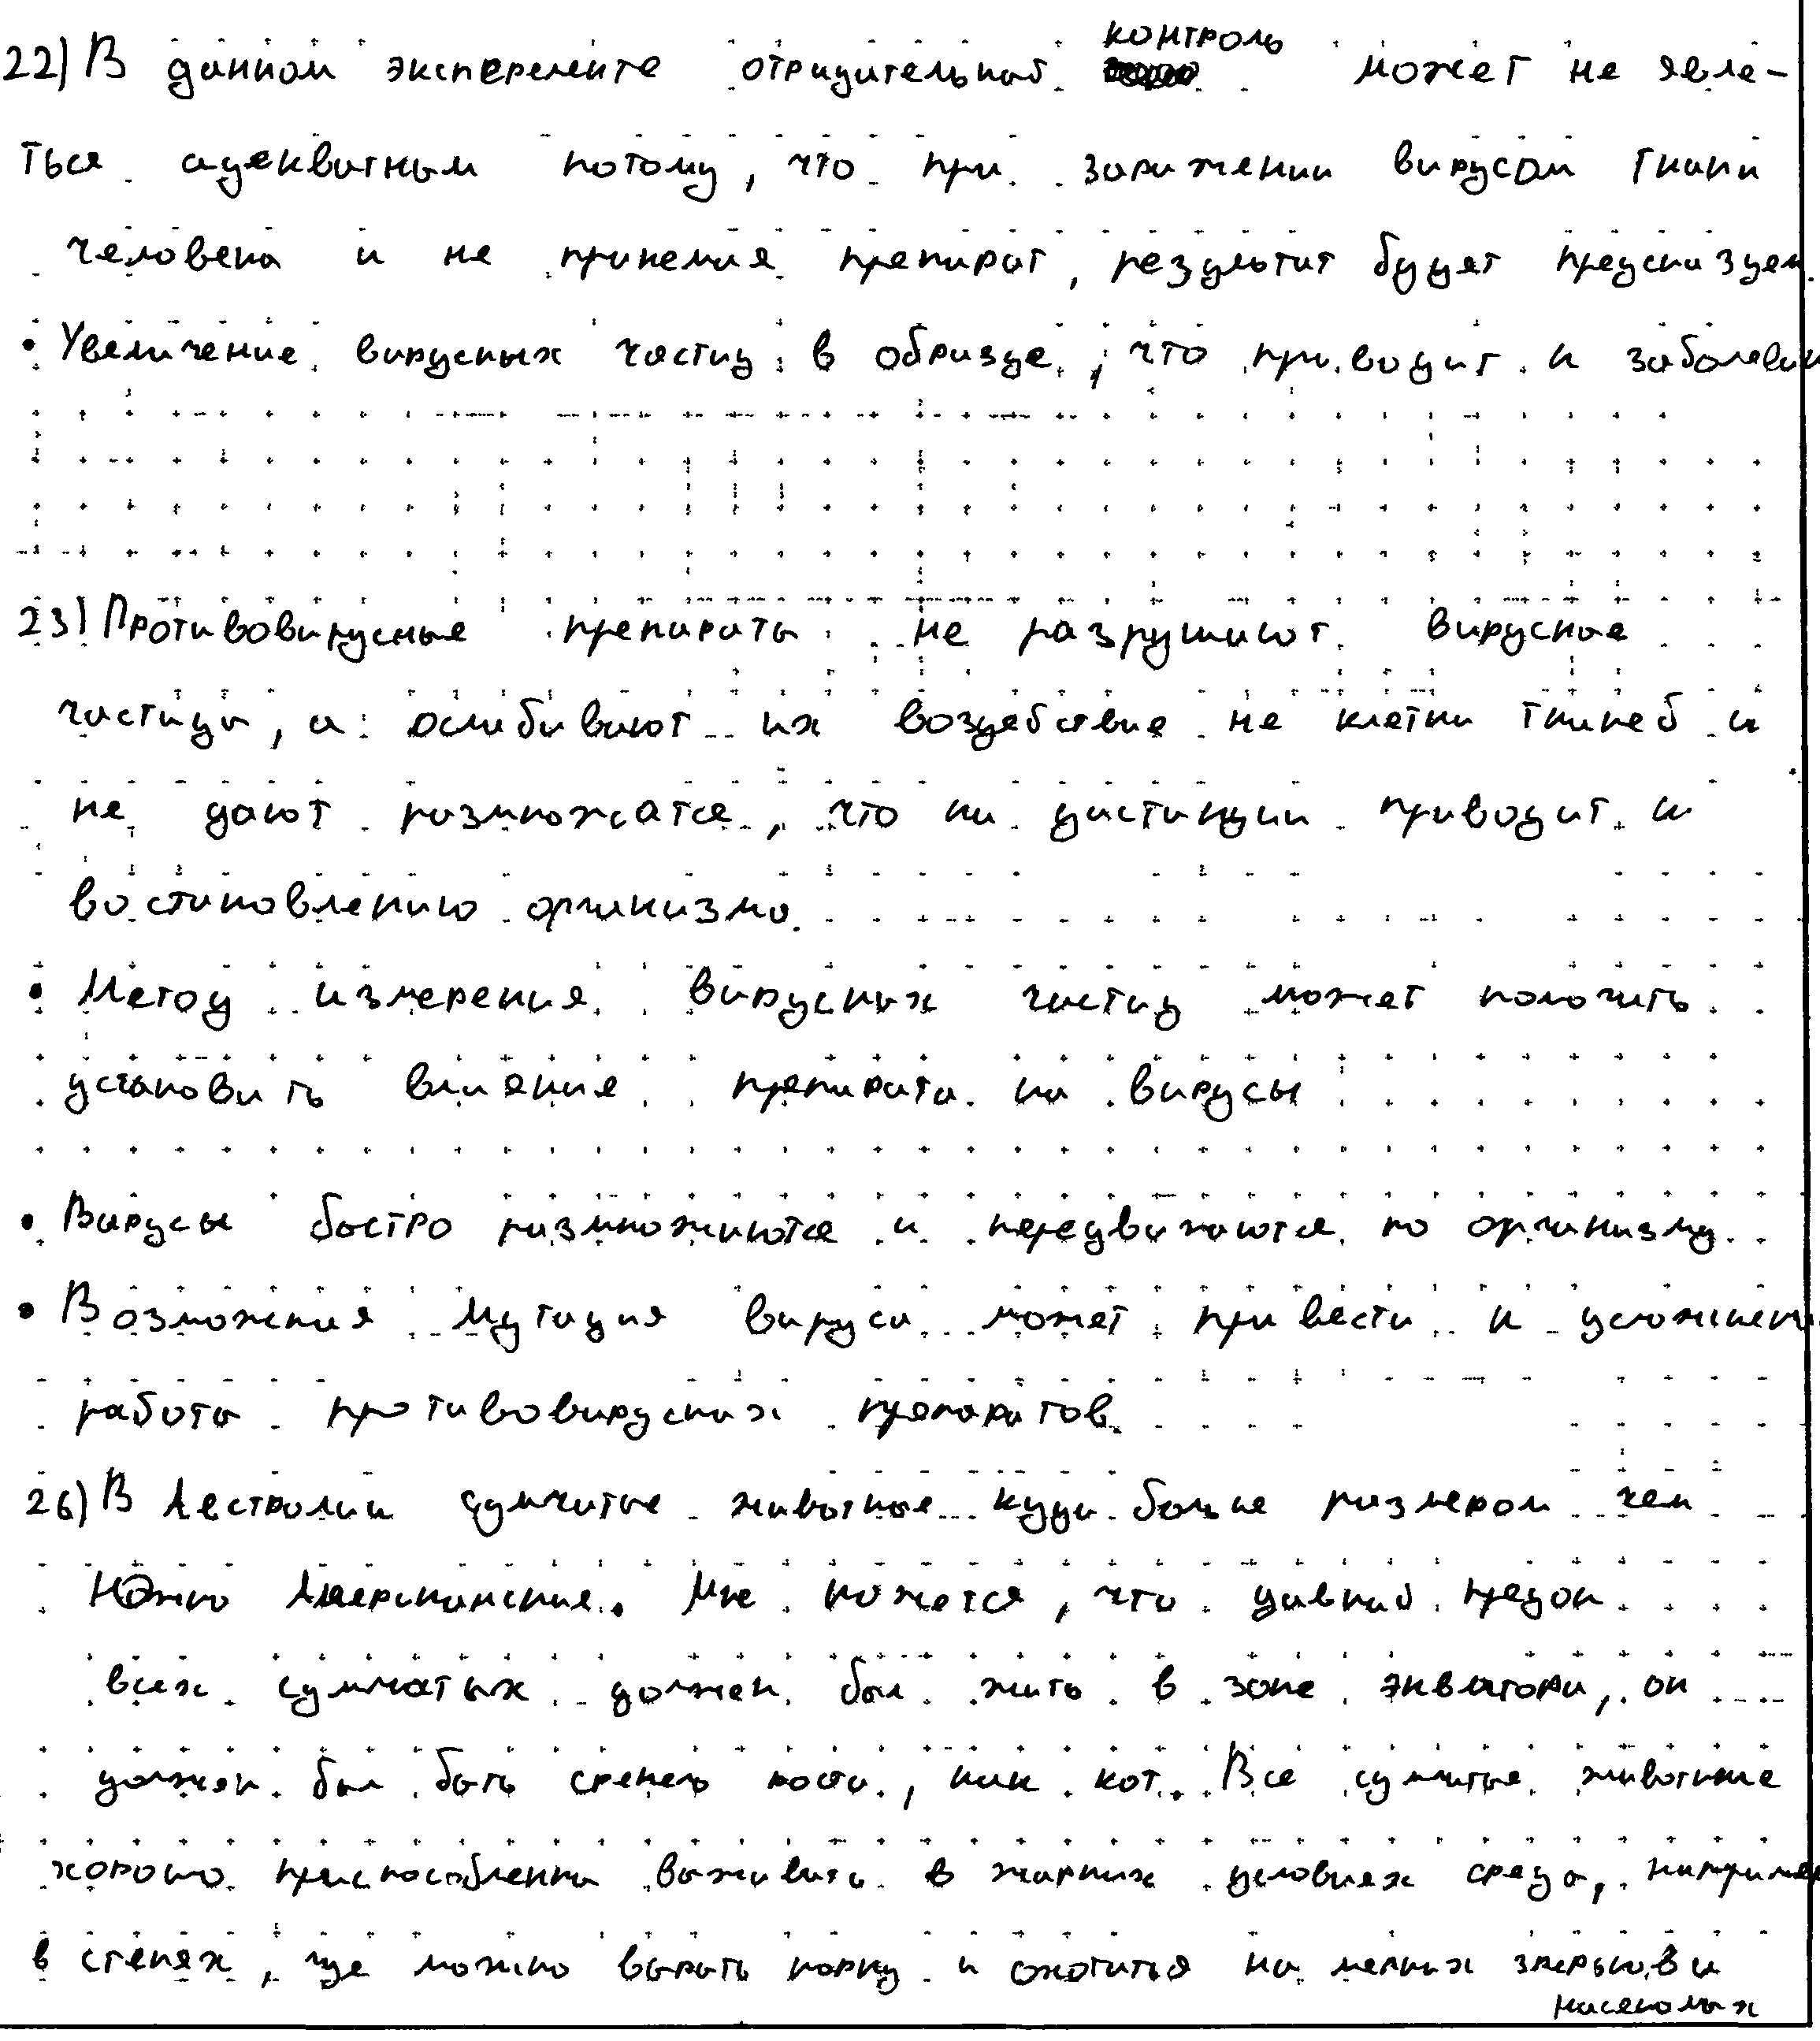 22) В данном эксперементе отрицательной контроль может не явле-
ться адекватным потому, что при заражении вирусом ткани
человека и не принемия препарат, результат будет предсказуем.
• Увеличение вирусных частиц в образце, что приводит к заболеван
23) Противовирусные препараты не разрушают вирусные
частицы, а ослабивают их воздействие не клетки тканей и
не дают размножатся, что на дистанции приводит к
востановлению организма.
• Метод измерения вирусных частиц может помочить
установить влияние препарата на вирусы
• Вирусы быстро размножаются и передвигаются по организму.
• Возможная мутация вируса может привести к усложнени
работы противовирусных препаратов.
26) В Австралии сумчатые животные куда больше размером чем
Южно Американские. Мне кажется, что давний предок
всех сумчатых должен был жить в зоне экватора, он
должен был быть среднего роста, как кот. Все сумчатые животные
хорошо приспособленны выживать в жарких условиях среды, например
в степях, где можно вырать норку и охотиться на мелких зверьков и
насекомых